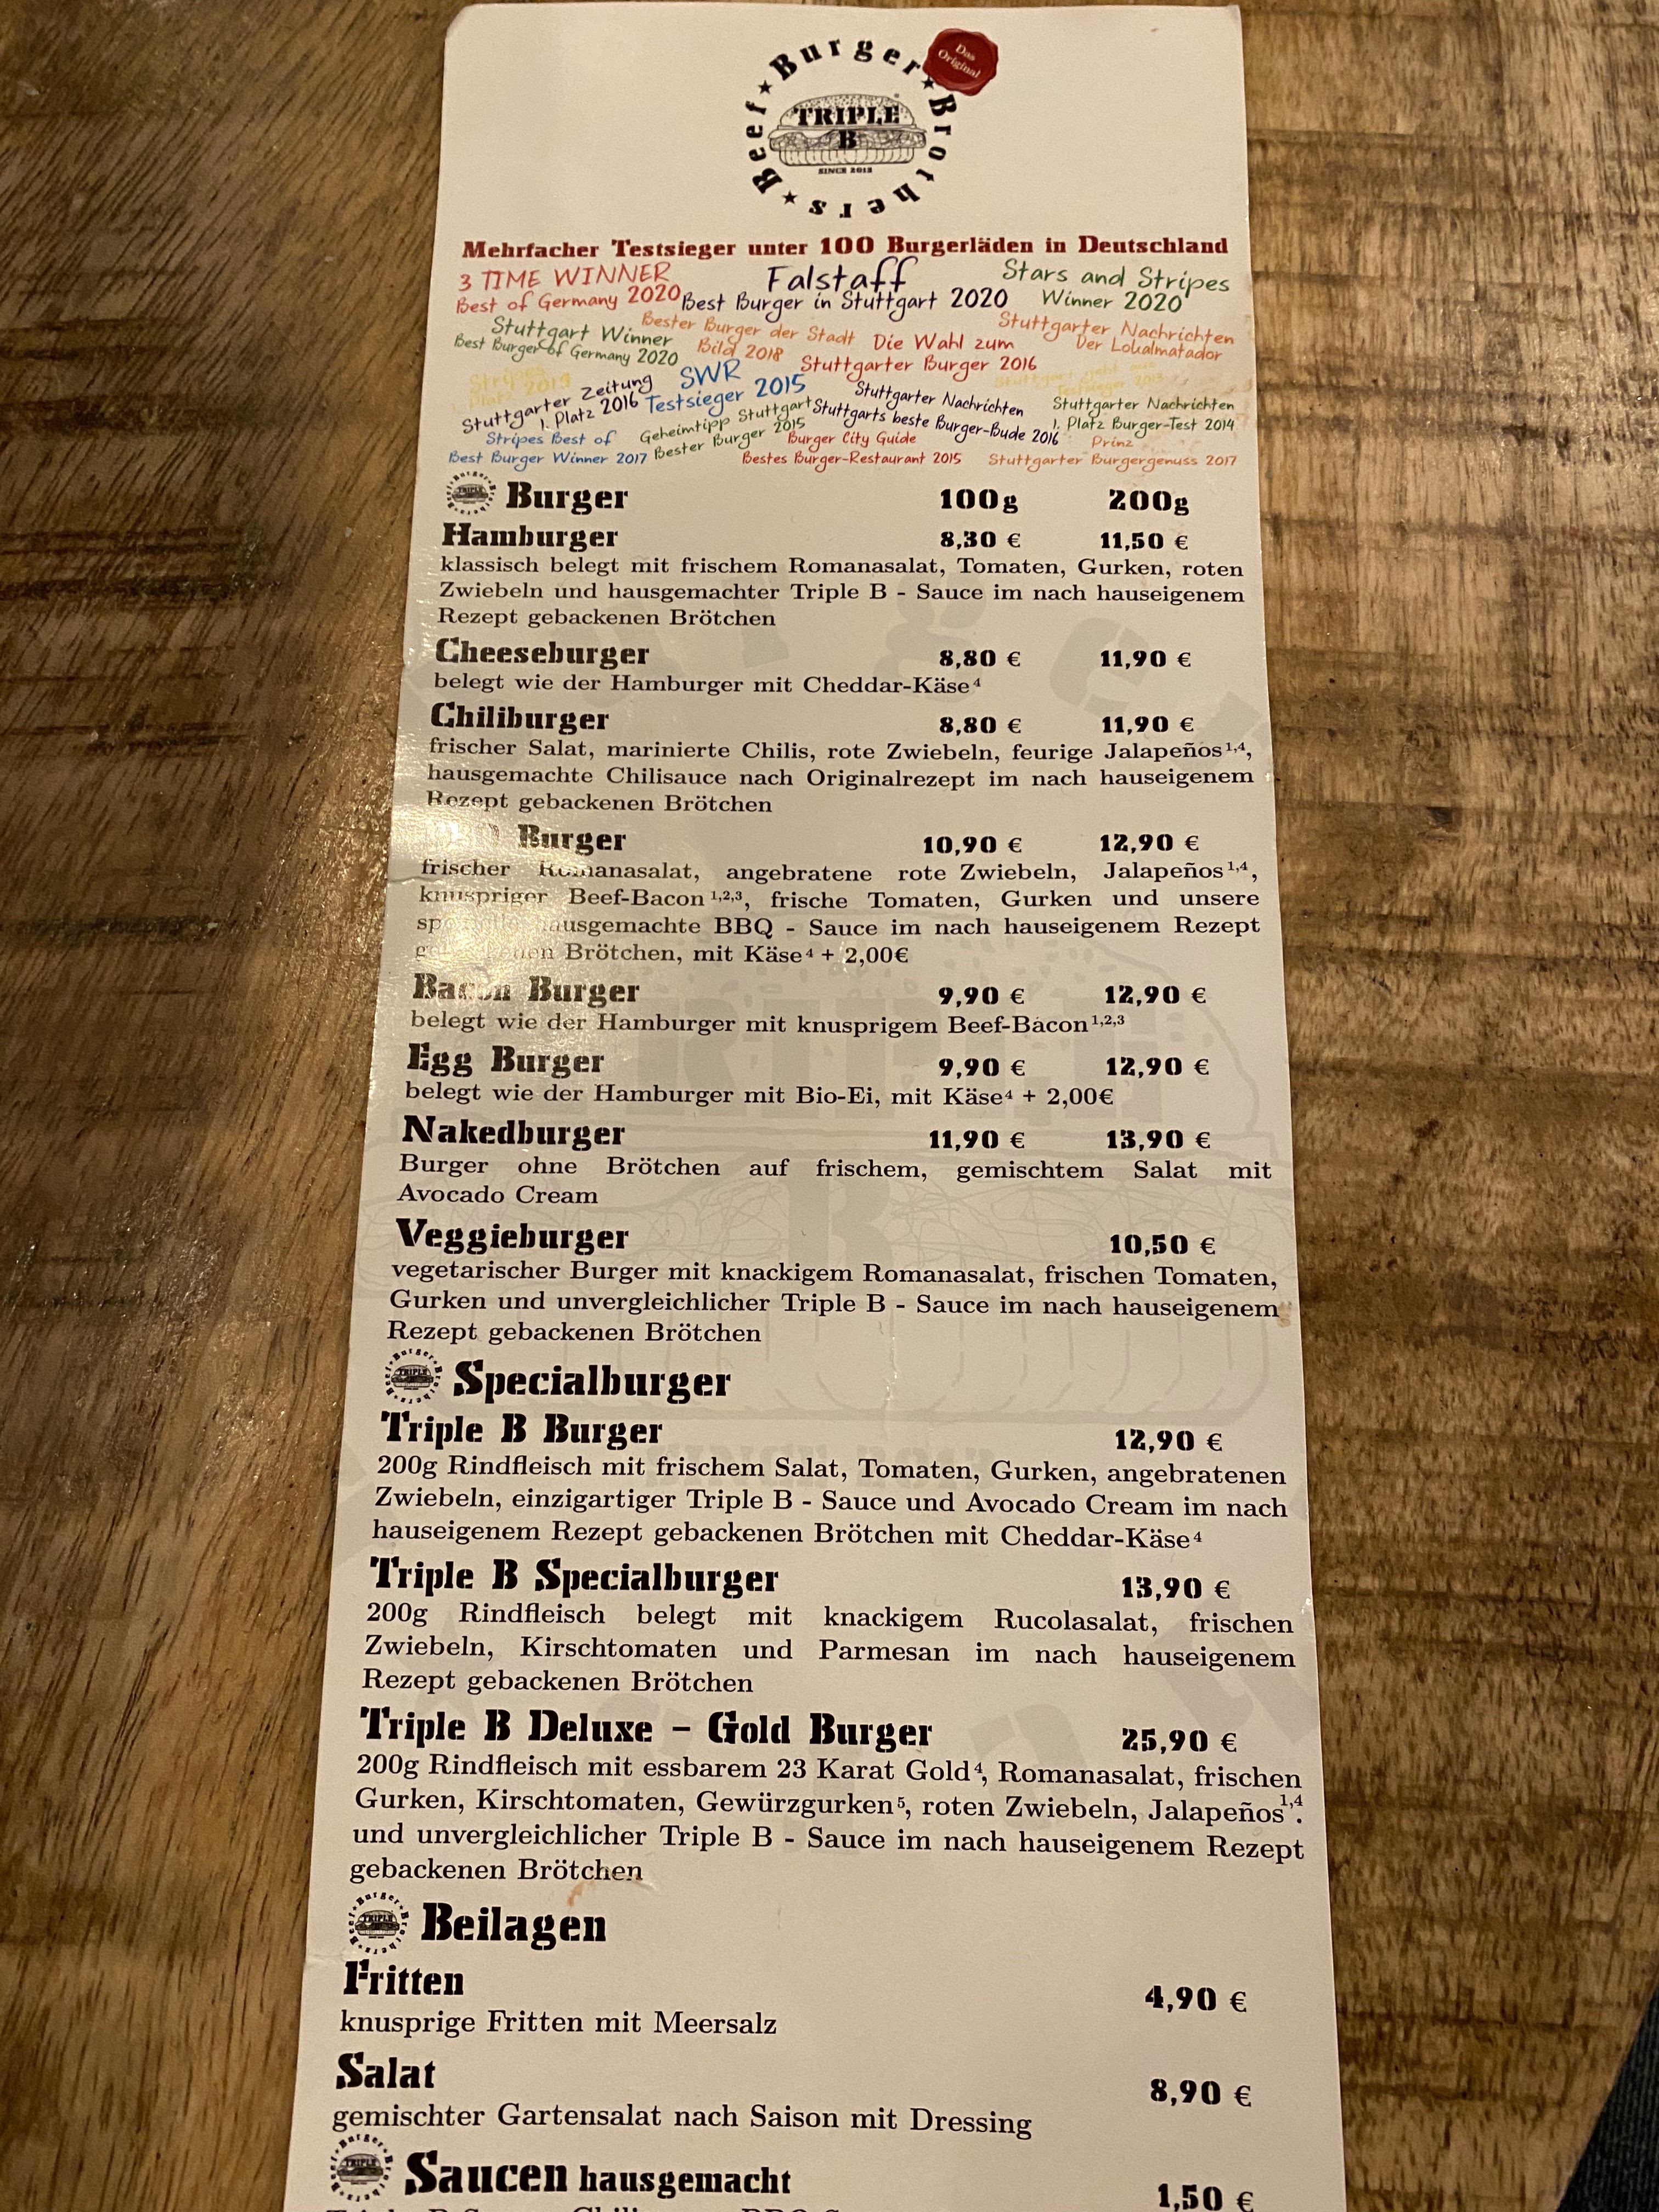 Beef ★ Burger ★ Brothers ★
Das
Original
TRIPLE
B
SINCE 2012
Mehrfacher Testsieger unter 100 Burgerläden in Deutschland
3 TIME WINNER
Best of Germany 2020
Falstaff
Best Burger in Stuttgart 2020
Stars and Stripes
Winner 2020
Stuttgart Winner
Best Burger of Germany 2020
Bester Burger der Stadt
Bild 2018
Die Wahl zum
Stuttgarter Burger 2016
Stuttgarter Nachrichten
Der Lokalmatador
Stripes
Platz 2013
Stuttgarter Zeitung
1. Platz 2016
SWR
Testsieger 2015
Stuttgarter Nachrichten
Stuttgarts beste Burger-Bude 2016
Stuttgarter Nachrichten
1. Platz Burger-Test 2014
Stripes Best of
Best Burger Winner 2017
Geheimtipp Stuttgart
Bester Burger 2015
Burger City Guide
Bestes Burger-Restaurant 2015
Prinz
Stuttgarter Burgergenuss 2017
Burger 100g 200g
Hamburger 8,30 € 11,50 €
klassisch belegt mit frischem Romanasalat, Tomaten, Gurken, roten
Zwiebeln und hausgemachter Triple B - Sauce im nach hauseigenem
Rezept gebackenen Brötchen
Cheeseburger 8,80 € 11,90 €
belegt wie der Hamburger mit Cheddar-Käse⁴
Chiliburger 8,80 € 11,90 €
frischer Salat, marinierte Chilis, rote Zwiebeln, feurige Jalapeños¹,⁴,
hausgemachte Chilisauce nach Originalrezept im nach hauseigenem
Rezept gebackenen Brötchen
Burger 10,90 € 12,90 €
frischer Romanasalat, angebratene rote Zwiebeln, Jalapeños¹,⁴,
knuspriger Beef-Bacon¹,²,³, frische Tomaten, Gurken und unsere
hausgemachte BBQ - Sauce im nach hauseigenem Rezept
Brötchen, mit Käse⁴ + 2,00€
Bacon Burger 9,90 € 12,90 €
belegt wie der Hamburger mit knusprigem Beef-Bacon¹,²,³
Egg Burger 9,90 € 12,90 €
belegt wie der Hamburger mit Bio-Ei, mit Käse⁴ + 2,00€
Nakedburger 11,90 € 13,90 €
Burger ohne Brötchen auf frischem, gemischtem Salat mit
Avocado Cream
Veggieburger 10,50 €
vegetarischer Burger mit knackigem Romanasalat, frischen Tomaten,
Gurken und unvergleichlicher Triple B - Sauce im nach hauseigenem
Rezept gebackenen Brötchen
Specialburger
Triple B Burger 12,90 €
200g Rindfleisch mit frischem Salat, Tomaten, Gurken, angebratenen
Zwiebeln, einzigartiger Triple B - Sauce und Avocado Cream im nach
hauseigenem Rezept gebackenen Brötchen mit Cheddar-Käse⁴
Triple B Specialburger 13,90 €
200g Rindfleisch belegt mit knackigem Rucolasalat, frischen
Zwiebeln, Kirschtomaten und Parmesan im nach hauseigenem
Rezept gebackenen Brötchen
Triple B Deluxe - Gold Burger 25,90 €
200g Rindfleisch mit essbarem 23 Karat Gold⁴, Romanasalat, frischen
Gurken, Kirschtomaten, Gewürzgurken⁵, roten Zwiebeln, Jalapeños¹,⁴.
und unvergleichlicher Triple B - Sauce im nach hauseigenem Rezept
gebackenen Brötchen
Beilagen
Fritten 4,90 €
knusprige Fritten mit Meersalz
Salat 8,90 €
gemischter Gartensalat nach Saison mit Dressing
Saucen hausgemacht 1,50 €